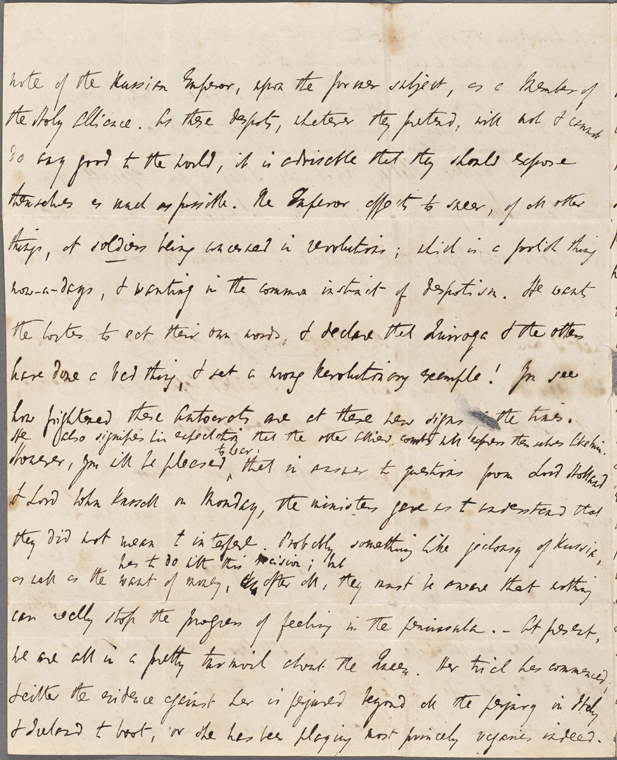 note of the Russian Emperor, upon the former subject, as a Member of
the Holy Alliance. As these despots, whatever they pretend, will not & cannot
do any good to the world, it is adviseable that they should expose
themselves as much as possible. The Emperor affects to sneer, of all other
things, at soldiers being concerned in revolutions; which is a foolish thing
now-a-days, & wanting in the common instinct of despotism. He wants
the Cortes to eat their own words, & declare that Quiroga & the others
have done a bad thing, & set a wrong Revolutionary example! You see
how frightened these Autocrats are at these new signs in the times.
He also signifies his expectation that the other Allies would all express themselves likewise.
However, you will be pleased to hear, that in answer to questions from Lord Holland
& Lord John Russell on Monday, the ministers gave us to understand that
they did not mean to interfere. Probably something like jealousy of Russia,
has to do with this decision; but
as well as the want of money, after all, they must be aware that nothing
can really stop the progress of feeling in the peninsula. – At present,
we are all in a pretty turmoil about the Queen. Her trial has commenced;
& either the evidence against her is perjured beyond all the perjury in Italy
& Ireland to boot, or she has been playing most princely vagaries indeed.